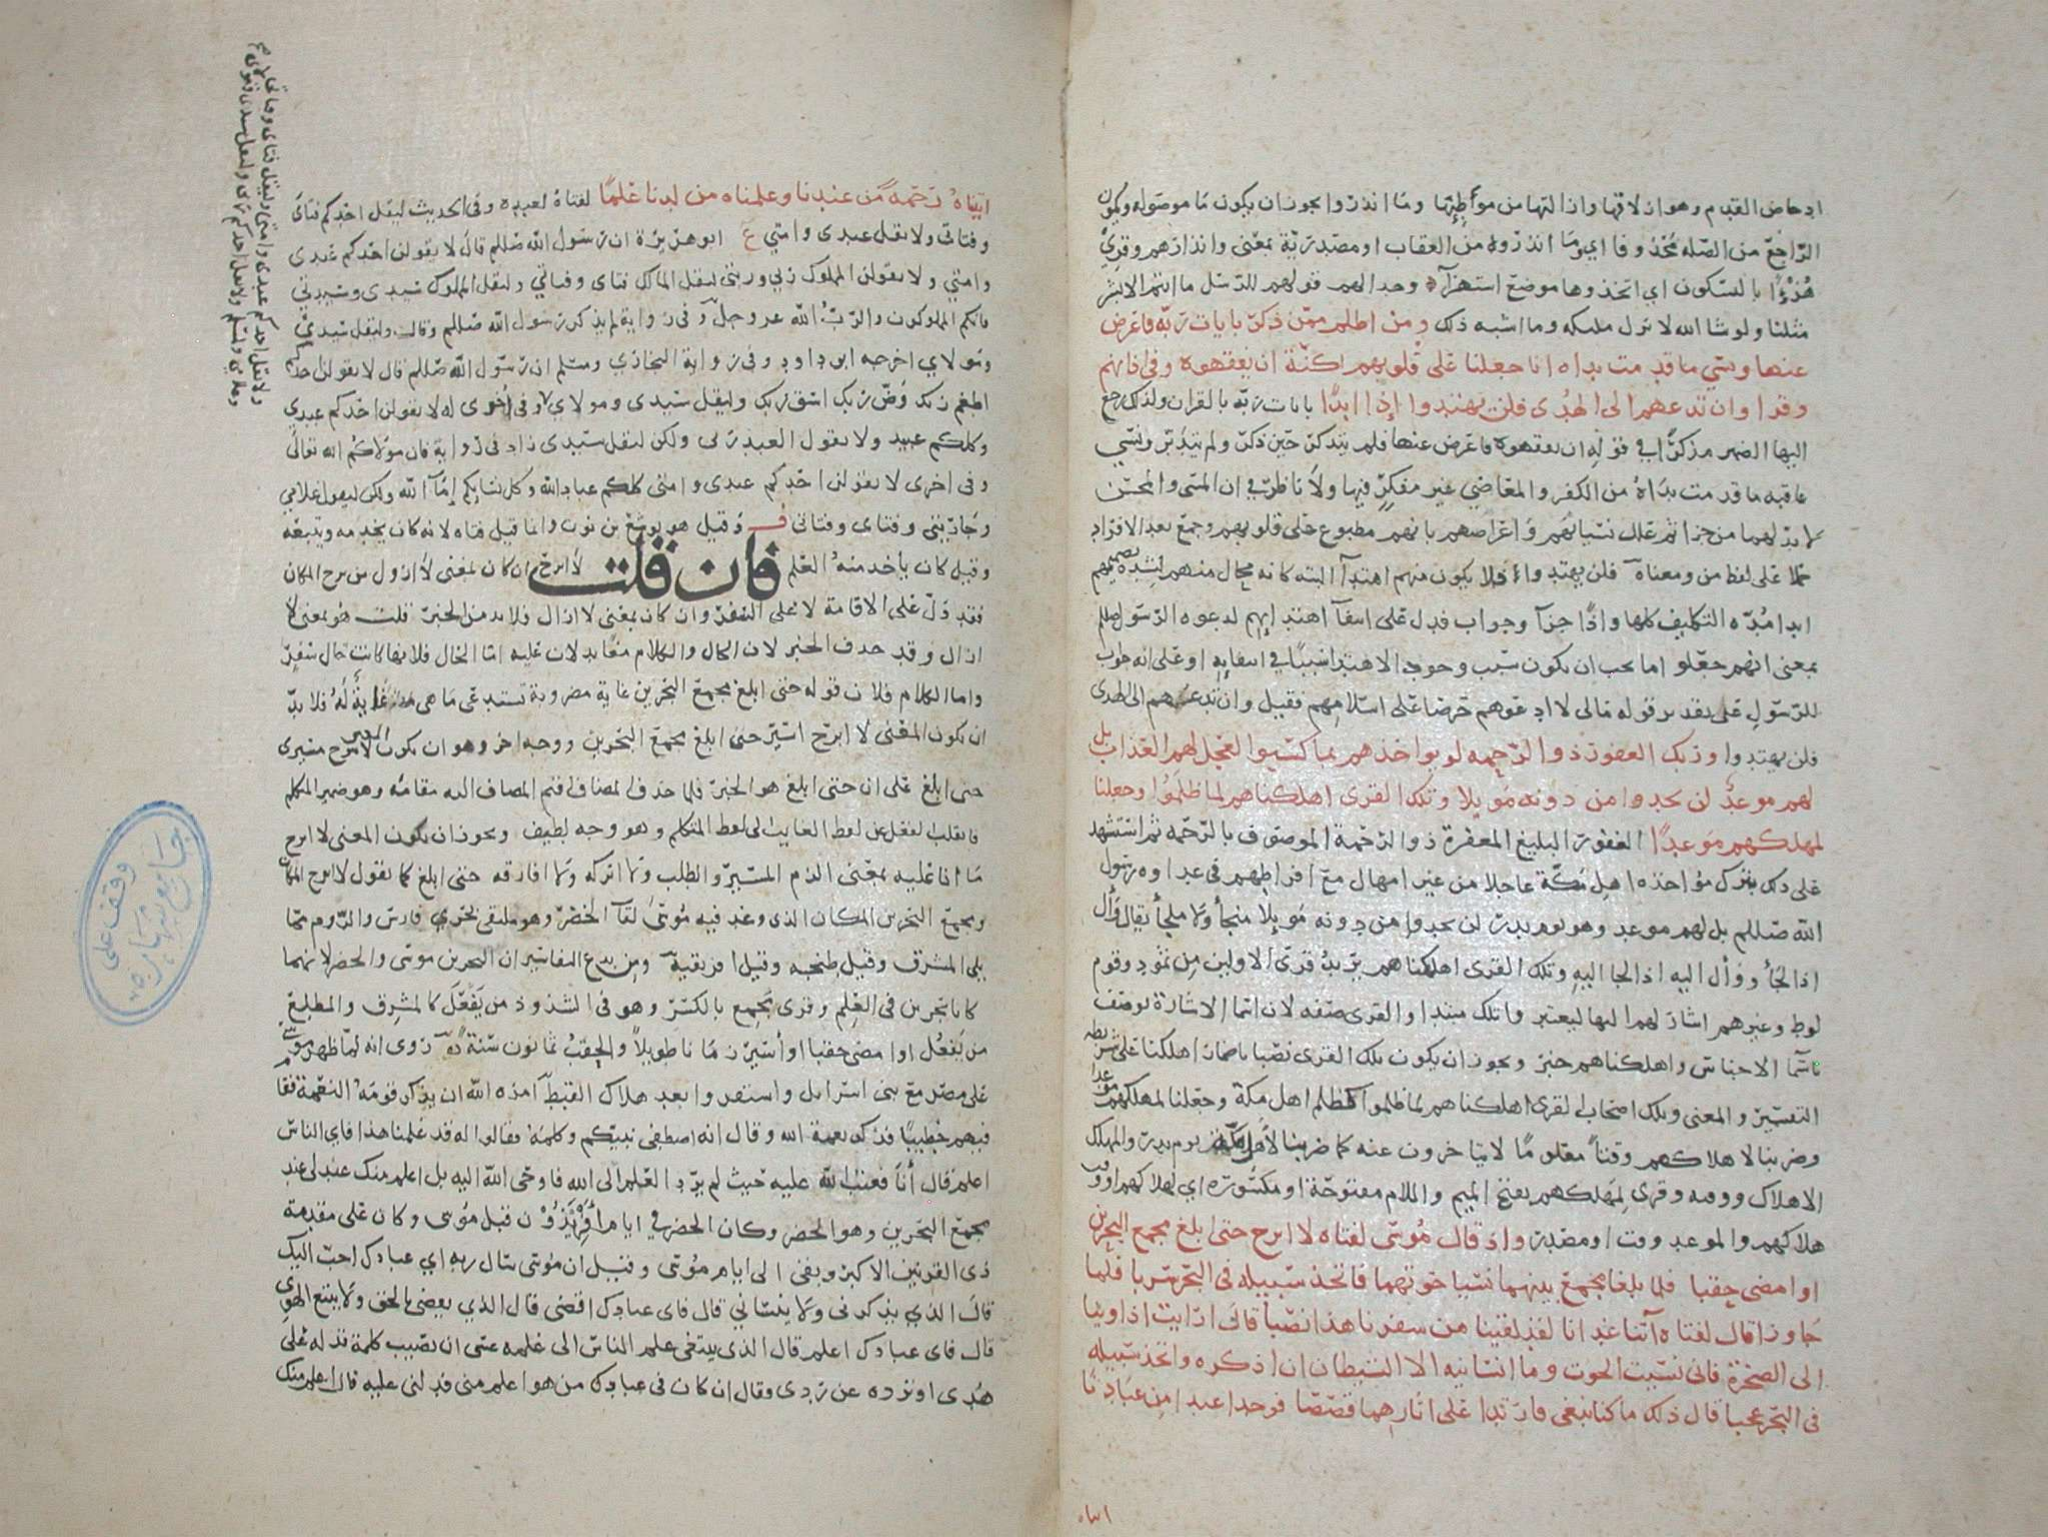 ادحاض القدم وهو ازلاقها وازالتها من موأطئها وما انذروا يجوز ان يكون ما موصوله ويكون
الراجع من الصله محذوفا اي وما انذروه من العقاب او مصدرية بمعنى وانذارهم وقرئ
هزءا بالسكون اي اتخذوها موضع استهزآء وجدالهم قولهم للرسل ما انتم الا بشر
مثلنا ولو شا الله لانزل مليكه وما اشبه ذلك ومن اظلم ممن ذكر بايات ربه فاعرض
عنها ونسي ما قدمت يداه انا جعلنا على قلوبهم اكنة ان يفقهوه وفي اذانهم
وقرا وان تدعهم الى الهدى فلن يهتدوا اذا ابدا بايات ربه بالقران ولذلك رجع
اليها الضمير مذكرا في قوله ان يفقهوه فاعرض عنها فلم يتذكر حين ذكر ولم يتدبر ونسي
عاقبه ما قدمت يداه من الكفر والمعاصي غير مفكر فيها ولا ناظر في ان المسي والمحسن
لا بد لهما من جزا ثم علل نسيانهم واعراضهم بانهم مطبوع على قلوبهم وجمع بعد الافراد
حملا على لفظ من ومعناه فلن يهتدوا فلا يكون منهم اهتدآ البته كانه محال منهم لشدة تصميمهم
ابدا مدة التكليف كلها واذا جزآ وجواب فدل على انتفآ اهتدايهم لدعوه الرسول صللم
بمعنى انهم جعلوا ما يجب ان يكون سبب وجود الاهتدا سببا في انتفايه وعلى انه جواب
للرسول على تقدير قوله مالي لا ادعوهم حرصا على اسلامهم فقيل وان تدعهم الى الهدى
فلن يهتدوا وربك الغفور ذو الرحمه لو يواخذهم بما كسبوا لعجل لهم العذاب بل
لهم موعد لن يجدوا من دونه مويلا وتلك القرى اهلكناهم لما ظلموا وجعلنا
لمهلكهم موعدا الغفور البليغ المغفرة ذو الرحمة الموصوف بالرحمه ثم استشهد
على ذلك بترك مؤاخذه اهل مكة عاجلا من غير امهال مع افراطهم في عداوه رسول
الله صللم بل لهم موعد وهو يوم بدر لن يجدوا من دونه مويلا منجأ ولا ملجأ يقال وأل
اذا لجأ ووأل اليه اذا لجا اليه وتلك القرى اهلكناهم يريد قرى الاولين من ثمود وقوم
لوط وغيرهم اشار لهم اليها ليعتبروا تلك مبتدا والقرى صفه لان اسما الاشارة توصف
باسما الاجناس واهلكناهم خبر ويجوز ان يكون تلك القرى نصبا باضمار اهلكنا على شريطه
التفسير والمعنى وتلك اصحاب القرى اهلكناهم لما ظلموا كظلم اهل مكة وجعلنا لمهلكهم موعدا
وضربنا لاهلاكهم وقتا معلوما لا يتاخرون عنه كما ضربنا لأهل مكة يوم بدر والمهلك
الاهلاك ووقته وقرى لمهلكهم بفتح الميم واللام مفتوحة او مكسورة اي لهلاكهم او وقت
هلاكهم والموعد وقت او مصدر واذ قال موسى لفتاه لا ابرح حتى ابلغ مجمع البحرين
او امضي حقبا فلما بلغا مجمع بينهما نسيا حوتهما فاتخذ سبيله في البحر سربا فلما
جاوزا قال لفتاه آتنا غدانا لقد لقينا من سفرنا هذا نصبا قال ارايت اذ اوينا
الى الصخرة فاني نسيت الحوت وما انسانيه الا الشيطان ان اذكره واتخذ سبيله
في البحر عجبا قال ذلك ما كنا نبغي فارتدا على اثارهما قصصا فوجدا عبدا من عبادنا
اتيناه رحمة من عندنا وعلمناه من لدنا علما لفتاة لعبده وفي الحديث ليقل احدكم فتاي
وفتاتي ولا يقل عبدي وامتي ع ابو هريرة ان رسول الله صللم قال لا يقولن احدكم عبدي
وامتي ولا يقولن المملوك ربي وربتي ليقل المالك فتاي وفتاتي وليقل المملوك سيدي وسيدتي
فانكم المملوكون والرب الله عز وجل وفي رواية لم يذكر رسول الله صللم وقال وليقل سيدي
ومولاي اخرجه ابو داود وفي رواية البخاري ومسلم ان رسول الله صللم قال لا يقولن احدكم
اطعم ربك وضئ ربك اسق ربك وليقل سيدي ومولاي وفي اخرى له لا يقولن احدكم عبدي
وكلكم عبيد ولا يقول العبد ربي ولكن ليقل سيدي زاد في رواية فان مولاكم الله تعالى
وفي اخرى لا يقولن احدكم عبدي وامتي كلكم عباد الله وكل نسايكم إمآ الله ولكن ليقول غلامي
وجاريتي وفتاي وفتاتي ف وقيل هو يوشع بن نون وانما قيل فتاه لانه كان يخدمه ويتبعه
وقيل كان يأخذ منه العلم فان قلت لا ابرح ان كان بمعنى لا ازول من برح المكان
فقد دل على الاقامة لا على السفر وان كان بمعنى لا ازال فلا بد من الخبر قلت هو بمعنى لا
ازال وقد حذف الخبر لان الحال والكلام معا يدلان عليه اما الحال فلانها كانت حال سفر
واما الكلام فلان قوله حتى ابلغ مجمع البحرين غاية مضروبة تستدعي ما هي غاية له فلا بد
ان يكون المعنى لا ابرح اسير حتى ابلغ مجمع البحرين ووجه اخر وهو ان يكون المعنى لا يبرح مسيري
حتى ابلغ على ان حتى ابلغ هو الخبر فلما حذف المضاف اقيم المضاف اليه مقامه وهو ضمير المتكلم
فانقلب الفعل عن لفظ الغايب الى لفظ المتكلم وهو وجه لطيف ويجوز ان يكون المعنى لا ابرح
ما انا عليه بمعنى الزم المسير والطلب ولا اتركه ولا افارقه حتى ابلغ كما تقول لا ابرح المكان
ومجمع البحرين المكان الذي وعد فيه موسى لقآ الخضر وهو ملتقى بحري فارس والروم مما
يلي المشرق وقيل طنجه وقيل افريقية ومن بدع التفاسير ان البحرين موسى والخضر لانهما
كانا بحرين في العلم وقرى مجمع بالكسر وهو في الشذوذ من يفعل كالمشرق والمطلع
من يفعل او امضي حقبا او أسير زمانا طويلا والحقب ثمانون سنة روى انه لما ظهر موسى
على مصر مع بني اسراىل واستقروا بعد هلاك القبط امره الله ان يذكر قومه النعمة فقام
فيهم خطيبا فذكر نعمة الله وقال انه اصطفى نبيكم وكلمه فقالوا له قد علمنا هذا فاي الناس
اعلم قال أنا فعتب الله عليه حيث لم يرد العلم الى الله فاوحى الله اليه بل اعلم منك عبد لي عند
مجمع البحرين وهو الخضر وكان الخضر في ايام أفريذون قبل موسى وكان على مقدمة
ذي القرنين الاكبر وبقي الى ايام موسى وقيل ان موسى سال ربه اي عبادك احب اليك
قال الذي يذكرني ولا ينساني قال فاي عبادك اقضى قال الذي يقضي بالحق ولا يتبع الهوى
قال فاي عبادك اعلم قال الذي يبتغي علم الناس الى علمه عسى ان يصيب كلمة تدله على
هدى او ترده عن ردى وقال ان كان في عبادك من هو اعلم مني فدلني عليه قال اعلم منك
وقف على